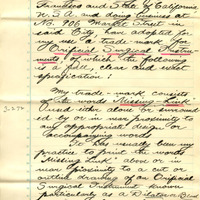 Francisco and State of California
U.S.A. and doing business at
No. 906 Market Street in
said City, have adopted for
my use a trade mark for
Orificial Surgical Instru
ments, of which the following
is a full, clear and exact
specification:
My trade-mark consists
of the words "Missing Link"
used either alone or surround
ed by or in near proximity to
any appropriate design or
accompanying words.
It has usually been my
practice to print the words
"Missing Link" above or in
near proximity to a cut or
outline drawing of an Orificial
Surgical Instrument known
particularly as a Dilator.